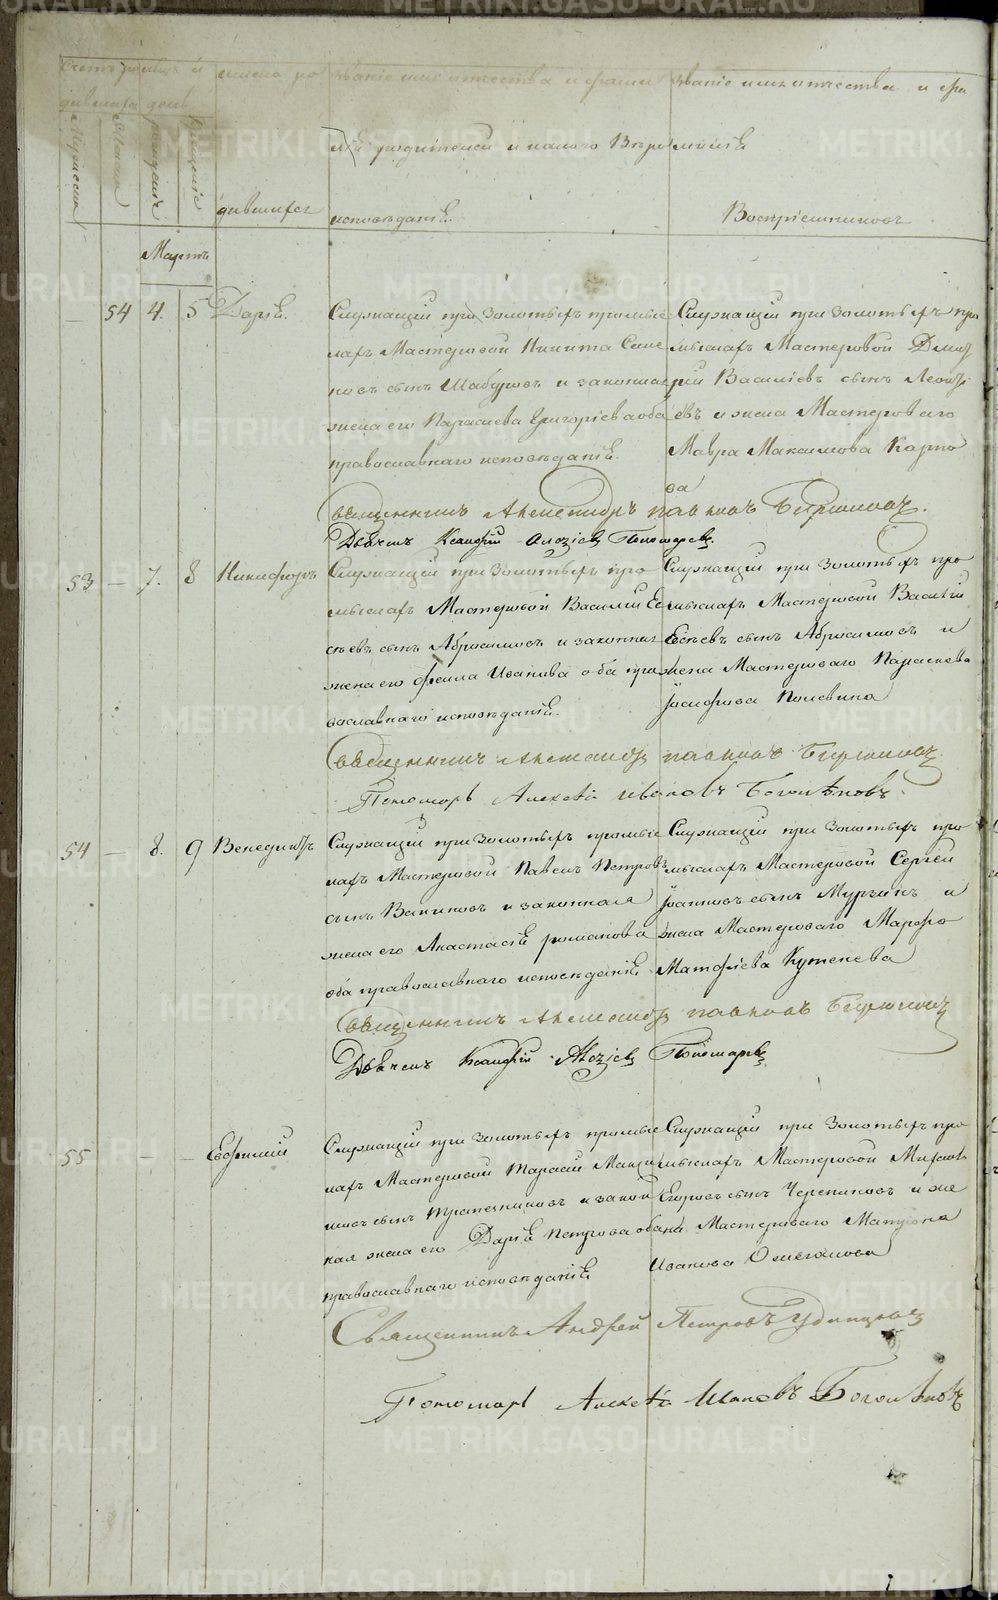 METRIKI.GASO-URAL.RU
званіе имя отчества и фами
званіе имя отчества и фа
родителей и какого Вѣро
исповѣданія.
дившихся
Воспріемниковъ
Мартъ
54 4. 5 Дарія.
Служащій при Золотыхъ промыс
лахъ Мастеровой Никита Семе
новъ сынъ Шабуровъ и законная
жена его Параскева Григоріева оба
православнаго исповѣданія.
Служащій при Золотыхъ про
мыслахъ Мастеровой Дмит
рій Василіевъ сынъ
евъ и жена Мастероваго
Мавра Максимова Карпо
ва
Священникъ Александръ Павловъ Бирюковъ.
Дьячекъ Пономаревъ.
53 – 7. 8 Никифоръ
Служащій при Золотыхъ про
мыслахъ Мастеровой Василій Ес
сѣевъ сынъ Абросимовъ и законная
жена его Фекла Иванова оба пра
вославнаго исповѣданія.
Служащій при Золотыхъ про
мыслахъ Мастеровой Василій
сынъ Абросимовъ и
жена Мастероваго Параскева
Іосифова Полевина
Священникъ Александръ Павловъ Бирюковъ
Пономарь Алексѣй Ивановъ
54 – 8. 9 Венедиктъ
Служащій при Золотыхъ промыс
лахъ Мастеровой Павелъ Петровъ
сынъ и законная
жена его Анастасія Романова
оба православнаго исповѣданія
Служащій при Золотыхъ про
мыслахъ Мастеровой Сергей
Іоанновъ сынъ Мурзинъ и
жена Мастероваго Марфа
Матфіева Кутенева
Священникъ Александръ Павловъ Бирюковъ
Дьячекъ Пономаревъ
55 – – Евфимій
Служащій при Золотыхъ промыс
лахъ Мастеровой Тарасій Макси
мовъ сынъ и закон
ная жена его Дарія Петрова оба
православнаго исповѣданія
Служащій при Золотыхъ про
мыслахъ Мастеровой
Егоровъ сынъ Черепановъ и же
на Мастероваго Матрона
Иванова
Священникъ Андрей Петровъ Удинцовъ
Пономарь Алексѣй Ивановъ